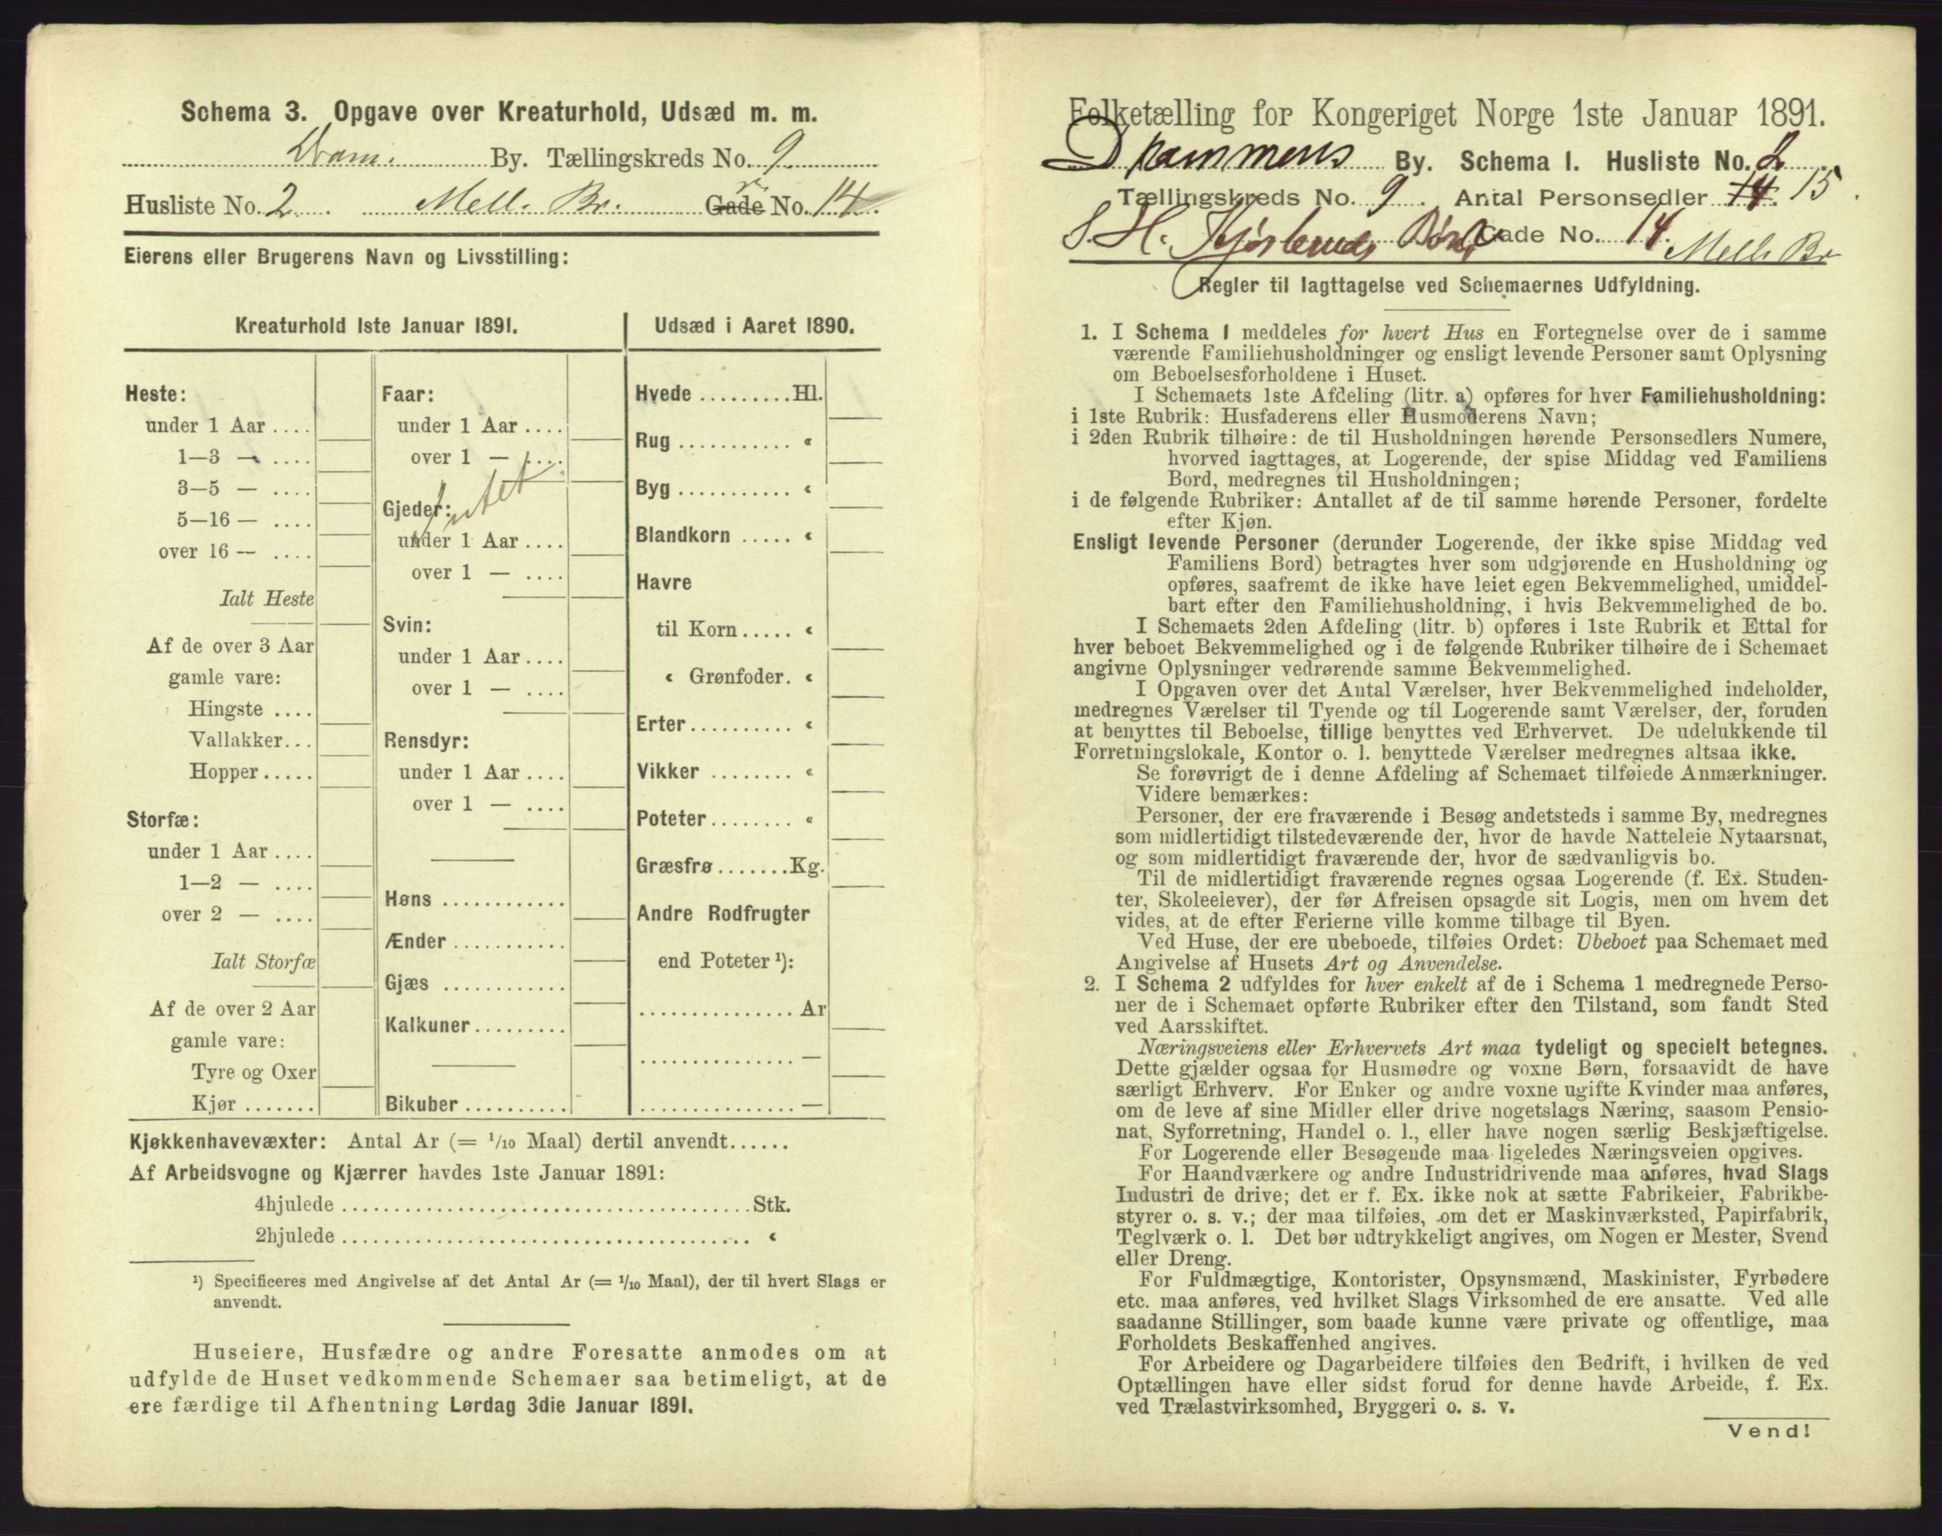 Schema 3. Opgave over Kreaturhold, Udsæd m. m.
Dram. By. Tællingskreds No. 9
Husliste No. 2 Mell. Br. Gade No. 14.
Eierens eller Brugerens Navn og Livsstilling:
Kreaturhold 1ste Januar 1891.
Heste:
under 1 Aar ....
1—3 — ....
3—5 — ....
5—16 — ....
over 16 — ....
Ialt Heste
Af de over 3 Aar
gamle vare:
Hingste ....
Vallakker...
Hopper.....
Storfæ:
under 1 Aar ....
1—2 — ....
over 2 — ....
Ialt Storfæ
Af de over 2 Aar
gamle vare:
Tyre og Oxer
Kjør .......
Faar:
under 1 Aar ....
over 1 — ....
Intet
Gjeder:
under 1 Aar ....
over 1 — ....
Svin:
under 1 Aar ....
over 1 — ....
Rensdyr:
under 1 Aar ....
over 1 — ....
Høns ............
Ænder ...........
Gjæs ............
Kalkuner.........
Bikuber ..........
Udsæd i Aaret 1890.
Hvede .........Hl.
Rug ........... «
Byg ........... «
Blandkorn ..... «
Havre
til Korn..... «
« Grønfoder. «
Erter.......... «
Vikker ........ «
Poteter........ «
Græsfrø.......Kg.
Andre Rodfrugter
end Poteter ¹):
...............Ar
...............—
...............—
Kjøkkenhavevæxter: Antal Ar (= 1/10 Maal) dertil anvendt......
Af Arbeidsvogne og Kjærrer havdes 1ste Januar 1891:
4hjulede ......................................Stk.
2hjulede ...................................... «
¹) Specificeres med Angivelse af det Antal Ar (= 1/10 Maal), der til hvert Slags er
anvendt.
Huseiere, Husfædre og andre Foresatte anmodes om at
udfylde de Huset vedkommende Schemaer saa betimeligt, at de
ere færdige til Afhentning Lørdag 3die Januar 1891.
Folketælling for Kongeriget Norge 1ste Januar 1891.
Drammens By. Schema I. Husliste No. 2.
Tællingskreds No. 9. Antal Personsedler 14. 15.
S. H. Gade No. 14. Mell. Br
Regler til Iagttagelse ved Schemaernes Udfyldning.
1. I Schema 1 meddeles for hvert Hus en Fortegnelse over de i samme
værende Familiehusholdninger og ensligt levende Personer samt Oplysning
om Beboelsesforholdene i Huset.
I Schemaets 1ste Afdeling (litr. a) opføres for hver Familiehusholdning:
i 1ste Rubrik: Husfaderens eller Husmoderens Navn;
i 2den Rubrik tilhøire: de til Husholdningen hørende Personsedlers Numere,
hvorved iagttages, at Logerende, der spise Middag ved Familiens
Bord, medregnes til Husholdningen;
i de følgende Rubriker: Antallet af de til samme hørende Personer, fordelte
efter Kjøn.
Ensligt levende Personer (derunder Logerende, der ikke spise Middag ved
Familiens Bord) betragtes hver som udgjørende en Husholdning og
opføres, saafremt de ikke have leiet egen Bekvemmelighed, umiddel-
bart efter den Familiehusholdning, i hvis Bekvemmelighed de bo.
I Schemaets 2den Afdeling (litr. b) opføres i 1ste Rubrik et Ettal for
hver beboet Bekvemmelighed og i de følgende Rubriker tilhøire de i Schemaet
angivne Oplysninger vedrørende samme Bekvemmelighed.
I Opgaven over det Antal Værelser, hver Bekvemmelighed indeholder,
medregnes Værelser til Tyende og til Logerende samt Værelser, der, foruden
at benyttes til Beboelse, tillige benyttes ved Erhvervet. De udelukkende til
Forretningslokale, Kontor o. l. benyttede Værelser medregnes altsaa ikke.
Se forøvrigt de i denne Afdeling af Schemaet tilføiede Anmærkninger.
Videre bemærkes:
Personer, der ere fraværende i Besøg andetsteds i samme By, medregnes
som midlertidigt tilstedeværende der, hvor de havde Natteleie Nytaarsnat,
og som midlertidigt fraværende der, hvor de sædvanligvis bo.
Til de midlertidigt fraværende regnes ogsaa Logerende (f. Ex. Studen-
ter, Skoleelever), der før Afreisen opsagde sit Logis, men om hvem det
vides, at de efter Ferierne ville komme tilbage til Byen.
Ved Huse, der ere ubeboede, tilføies Ordet: Ubeboet paa Schemaet med
Angivelse af Husets Art og Anvendelse.
2. I Schema 2 udfyldes for hver enkelt af de i Schema 1 medregnede Perso-
ner de i Schemaet opførte Rubriker efter den Tilstand, som fandt Sted
ved Aarsskiftet.
Næringsveiens eller Erhvervets Art maa tydeligt og specielt betegnes.
Dette gjælder ogsaa for Husmødre og voxne Børn, forsaavidt de have
særligt Erhverv. For Enker og andre voxne ugifte Kvinder maa anføres,
om de leve af sine Midler eller drive nogetslags Næring, saasom Pensio-
nat, Syforretning, Handel o. l., eller have nogen særlig Beskjæftigelse.
For Logerende eller Besøgende maa ligeledes Næringsveien opgives.
For Haandværkere og andre Industridrivende maa anføres, hvad Slags
Industri de drive; det er f. Ex. ikke nok at sætte Fabrikeier, Fabrikbe-
styrer o. s. v.; der maa tilføies, om det er Maskinværksted, Papirfabrik,
Teglværk o. l. Det bør udtrykkeligt angives, om Nogen er Mester, Svend
eller Dreng.
For Fuldmægtige, Kontorister, Opsynsmænd, Maskinister, Fyrbødere
etc. maa anføres, ved hvilket Slags Virksomhed de ere ansatte. Ved alle
saadanne Stillinger, som baade kunne være private og offentlige, maa
Forholdets Beskaffenhed angives.
For Arbeidere og Dagarbeidere tilføies den Bedrift, i hvilken de ved
Optællingen have eller sidst forud for denne havde Arbeide, f. Ex.
ved Trælastvirksomhed, Bryggeri o. s. v.
Vend!